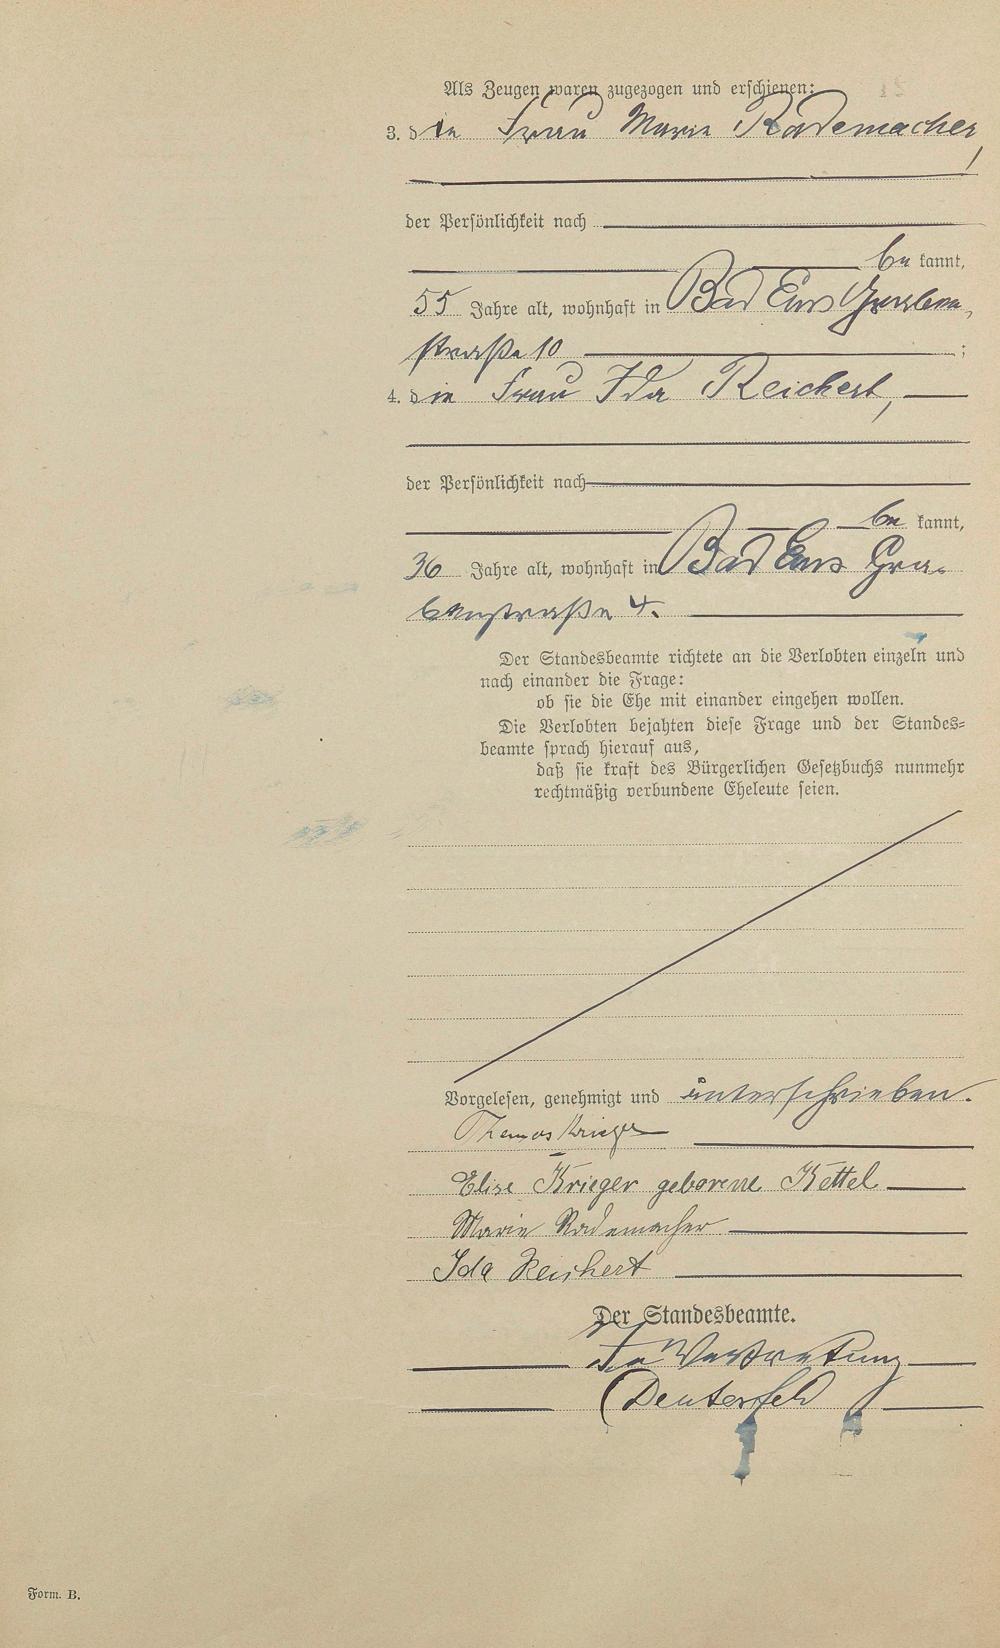 Als Zeugen waren zugezogen und erschienen:
3. die Frau Marie Rademacher,
der Persönlichkeit nach
be kannt,
55 Jahre alt, wohnhaft in Bad Ems Graben-
straße 10 ;
4. die Frau Ida Reichert,
der Persönlichkeit nach
be kannt,
36 Jahre alt, wohnhaft in Bad Ems Gra-
benstraße 4.
Der Standesbeamte richtete an die Verlobten einzeln und
nach einander die Frage:
ob sie die Ehe mit einander eingehen wollen.
Die Verlobten bejahten diese Frage und der Standes-
beamte sprach hierauf aus,
daß sie kraft des Bürgerlichen Gesetzbuchs nunmehr
rechtmäßig verbundene Eheleute seien.
Vorgelesen, genehmigt und unterschrieben.
Thomas Krieger
Elise Krieger geborene Kettel
Marie Rademacher
Ida Reichert
Der Standesbeamte.
In Vertretung
Form. B.